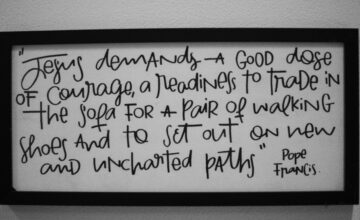 "Jesus demands A GOOD dose
OF Courage, a readiness to trade in
the sofa FOR A PAIR of walking
shoes And to set out on new
and uncharted paths" Pope
Francis.